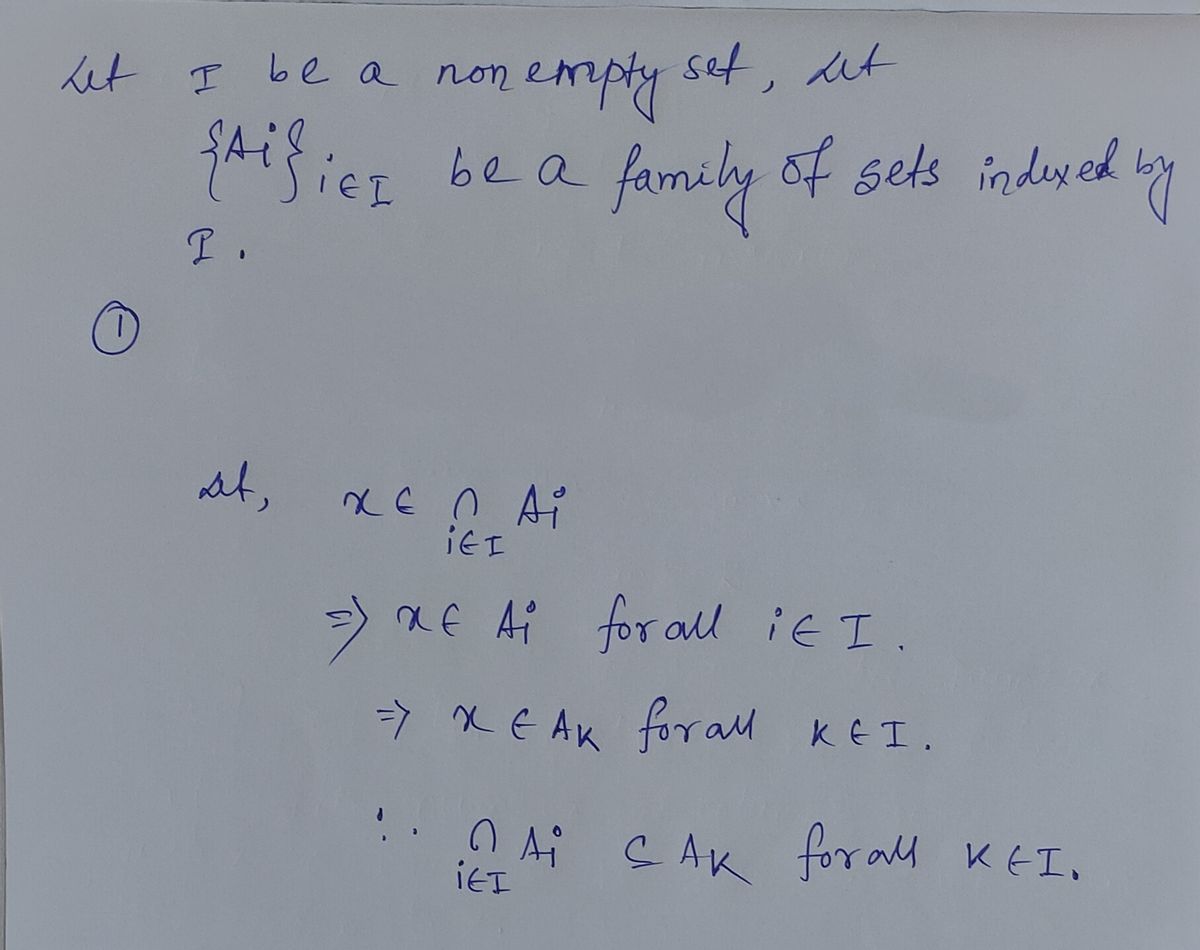 Let I be a non empty set, Let
{Ai}i∈I be a family of sets indexed by
I.
①
Let, x ∈ ∩i∈I Ai
⇒ x ∈ Ai for all i ∈ I.
⇒ x ∈ AK for all K ∈ I.
∴ ∩i∈I Ai ⊆ AK for all K ∈ I.